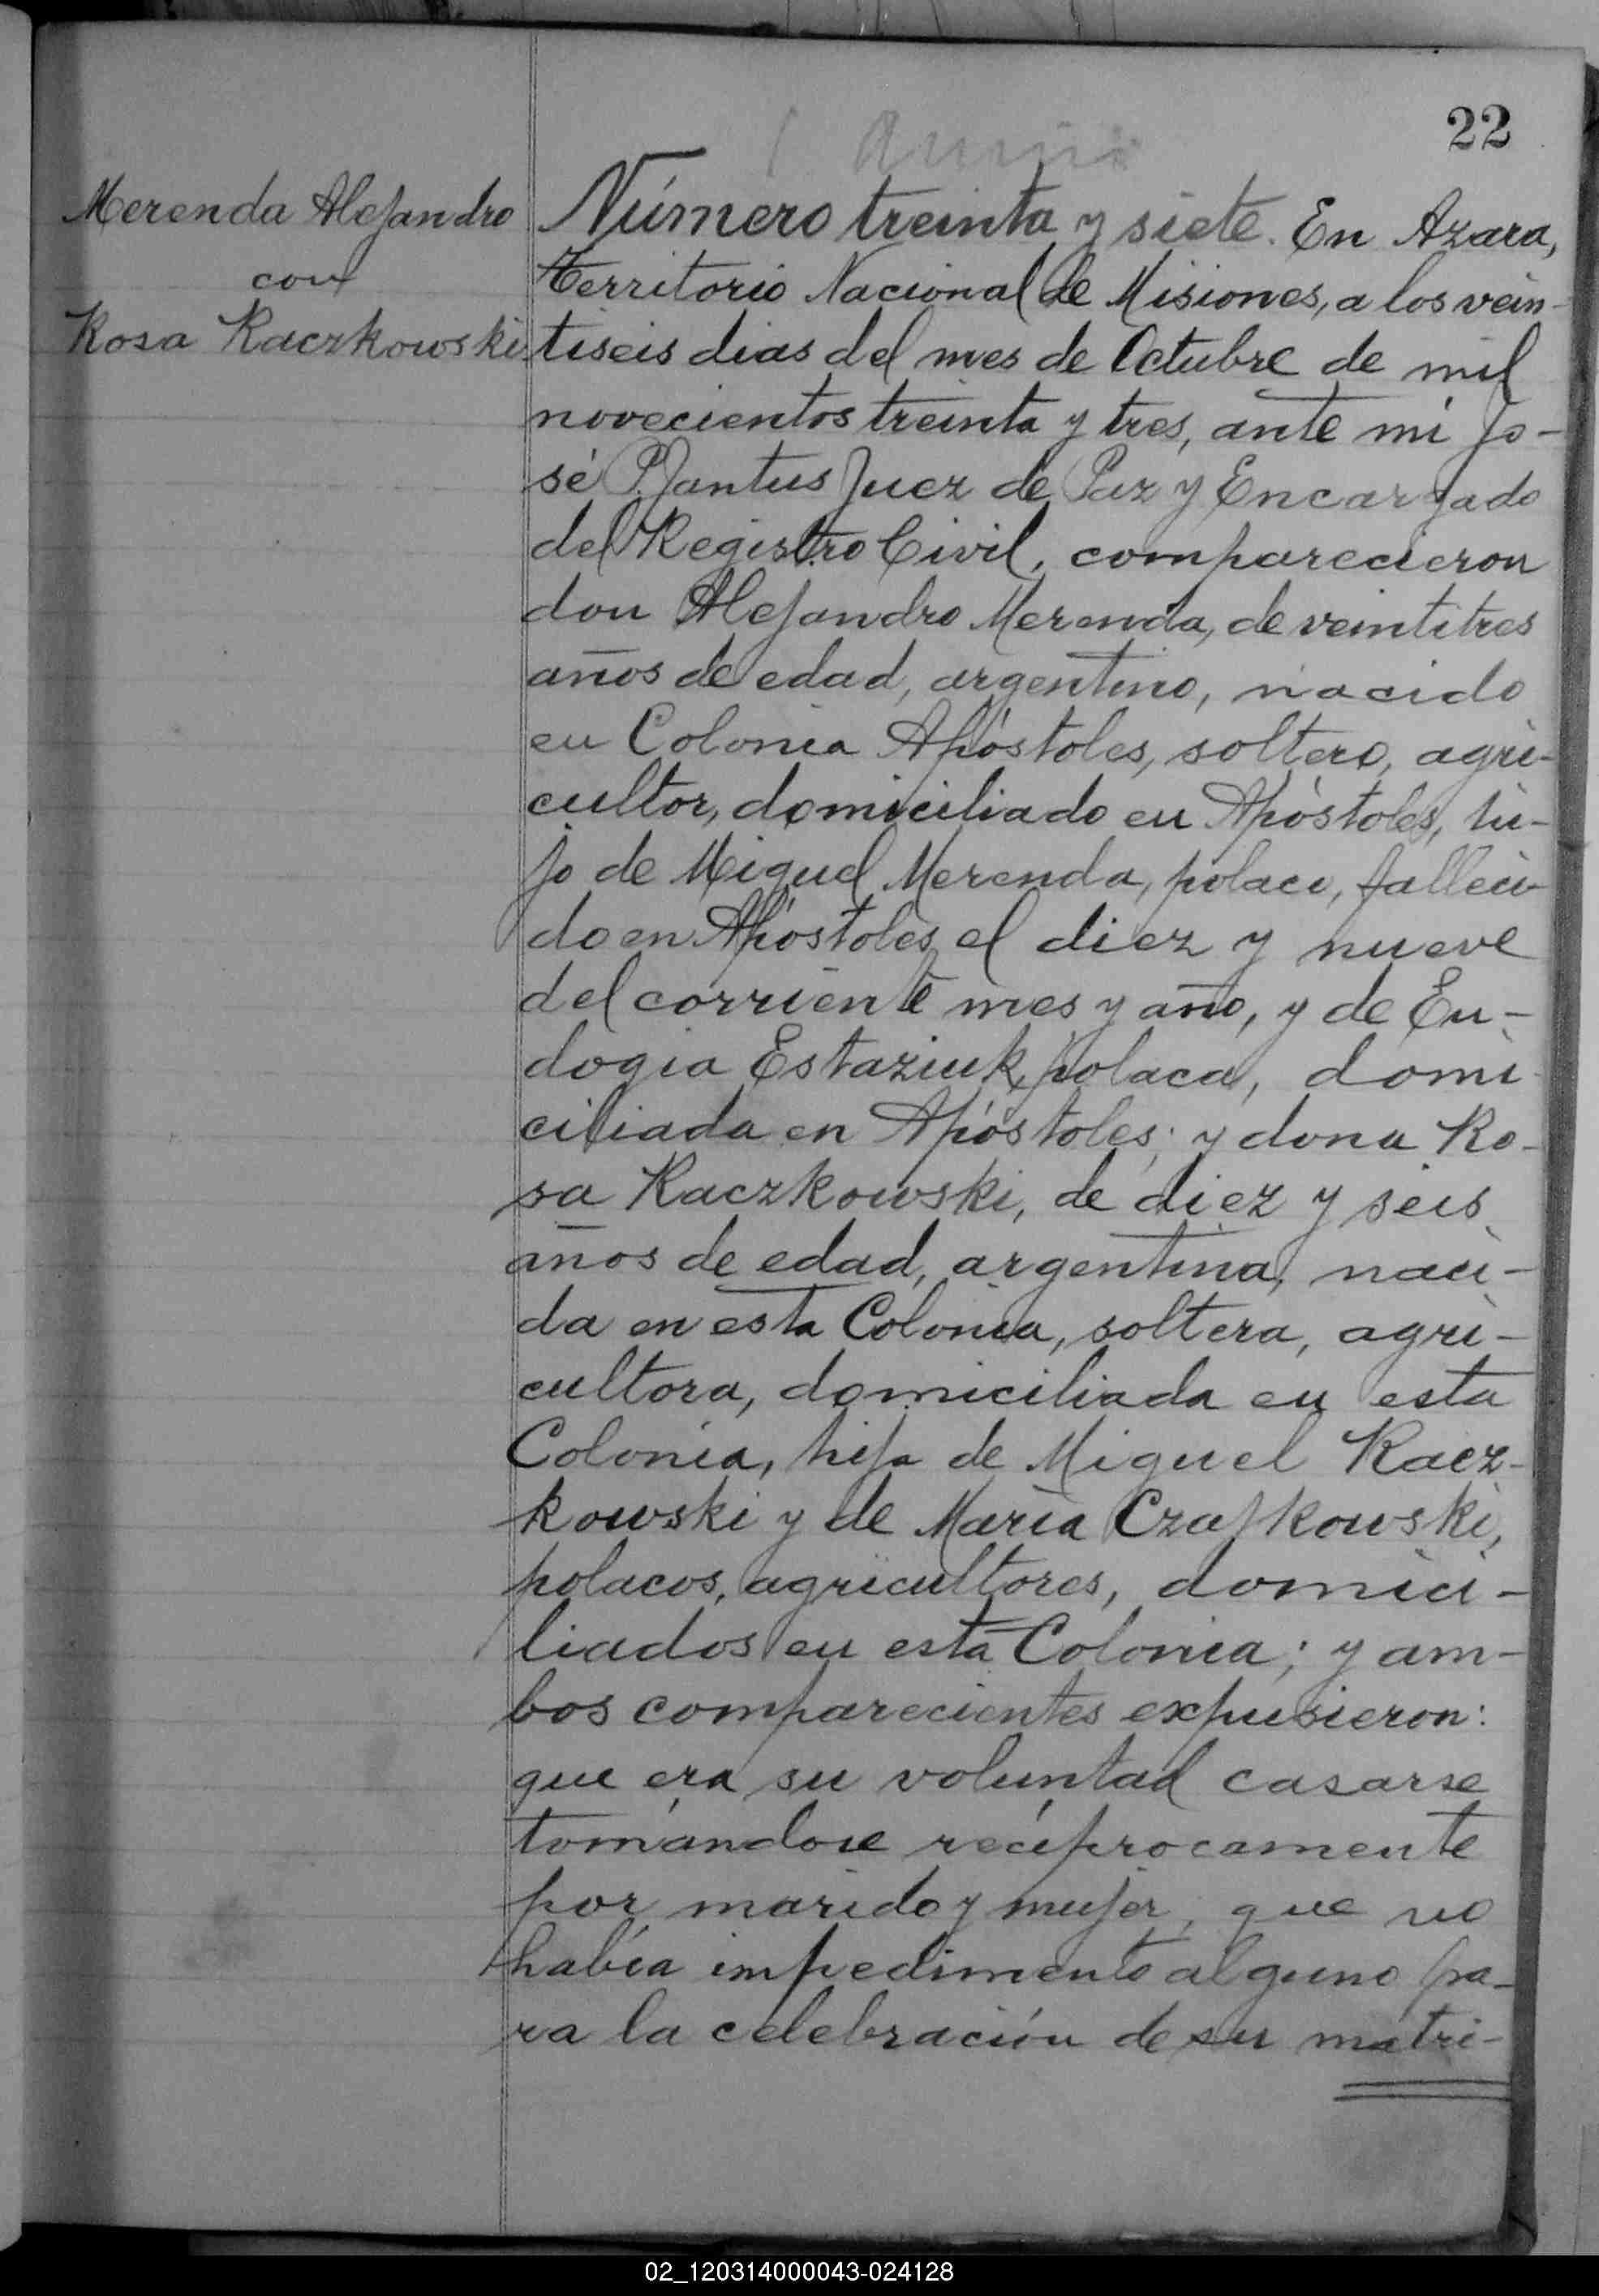 22
Merenda Alejandro
con
Rosa Kaczkowski
Número treinta y siete. En Azara,
Territorio Nacional de Misiones, a los vein-
tiseis dias del mes de Octubre de mil
novecientos treinta y tres, ante mi Jo-
sé P. Jantus Juez de Paz y Encargado
del Registro Civil, comparecieron
don Alejandro Merenda, de veintitres
años de edad, argentino, nacido
en Colonia Apóstoles, soltero, agri-
cultor, domiciliado en Apóstoles, hi-
jo de Miguel Merenda, polaco, falleci-
do en Apóstoles el diez y nueve
del corriente mes y año, y de Eu-
dogia Estaziuk, polaca, domi-
ciliada en Apóstoles; y dona Ro-
sa Kaczkowski, de diez y seis
años de edad, argentina, naci-
da en esta Colonia, soltera, agri-
cultora, domiciliada en esta
Colonia, hija de Miguel Kacz-
kowski y de María Czajkowski,
polacos, agricultores, domici-
liados en esta Colonia; y am-
bos comparecientes expusieron:
que era su voluntad casarse
tomándose recíprocamente
por marido y mujer, que no
había impedimento alguno pa-
ra la celebración de su matri-
02_120314000043-024128